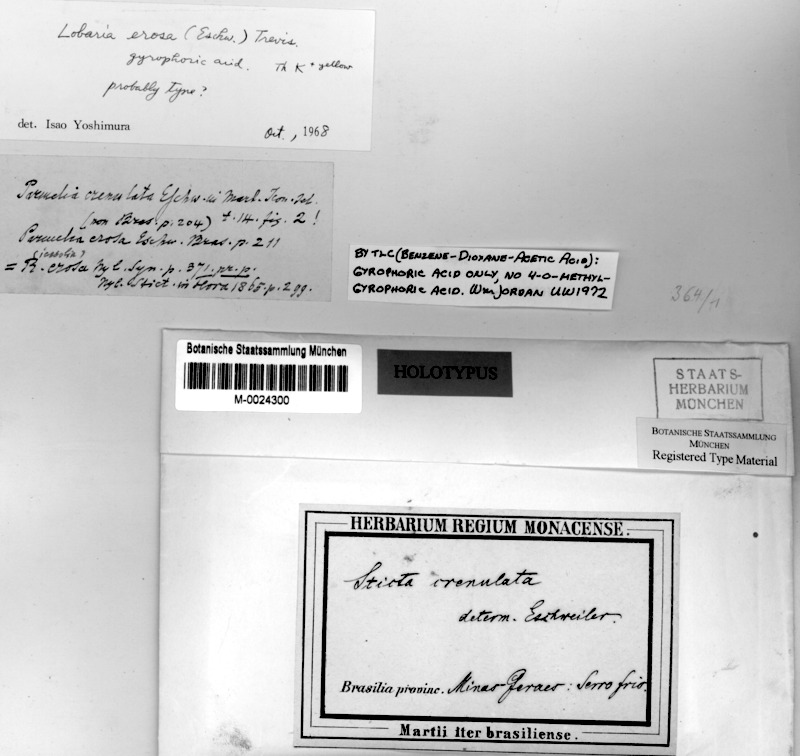 Lobaria erosa (Eschw.) Trevis.
gyrophoric acid. Th K + yellow
probably type?
det. Isao Yoshimura Oct., 1968
Parmelia crenulata Eschw. in Mart. Icon. sel.
(non Bras. p. 204) t. 14. fig. 2 !
Parmelia erosa Eschw. Bras. p. 211
= R. erosa Nyl. Syn. p. 371. pr. p.
Nyl. Stict. in Flora 1865. p. 299.
BY TLC (BENZENE-DIOXANE-ACETIC ACID):
GYROPHORIC ACID ONLY, NO 4-O-METHYL-
GYROPHORIC ACID. Wm JORDAN UW1972
364/11
Botanische Staatssammlung München
M-0024300
HOLOTYPUS
STAATS-
HERBARIUM
MÜNCHEN
BOTANISCHE STAATSSAMMLUNG
MÜNCHEN
Registered Type Material
HERBARIUM REGIUM MONACENSE.
Sticta crenulata
determ. Eschweiler.
Brasilia provinc. Minas Geraes: Serro frio.
Martii iter brasiliense.